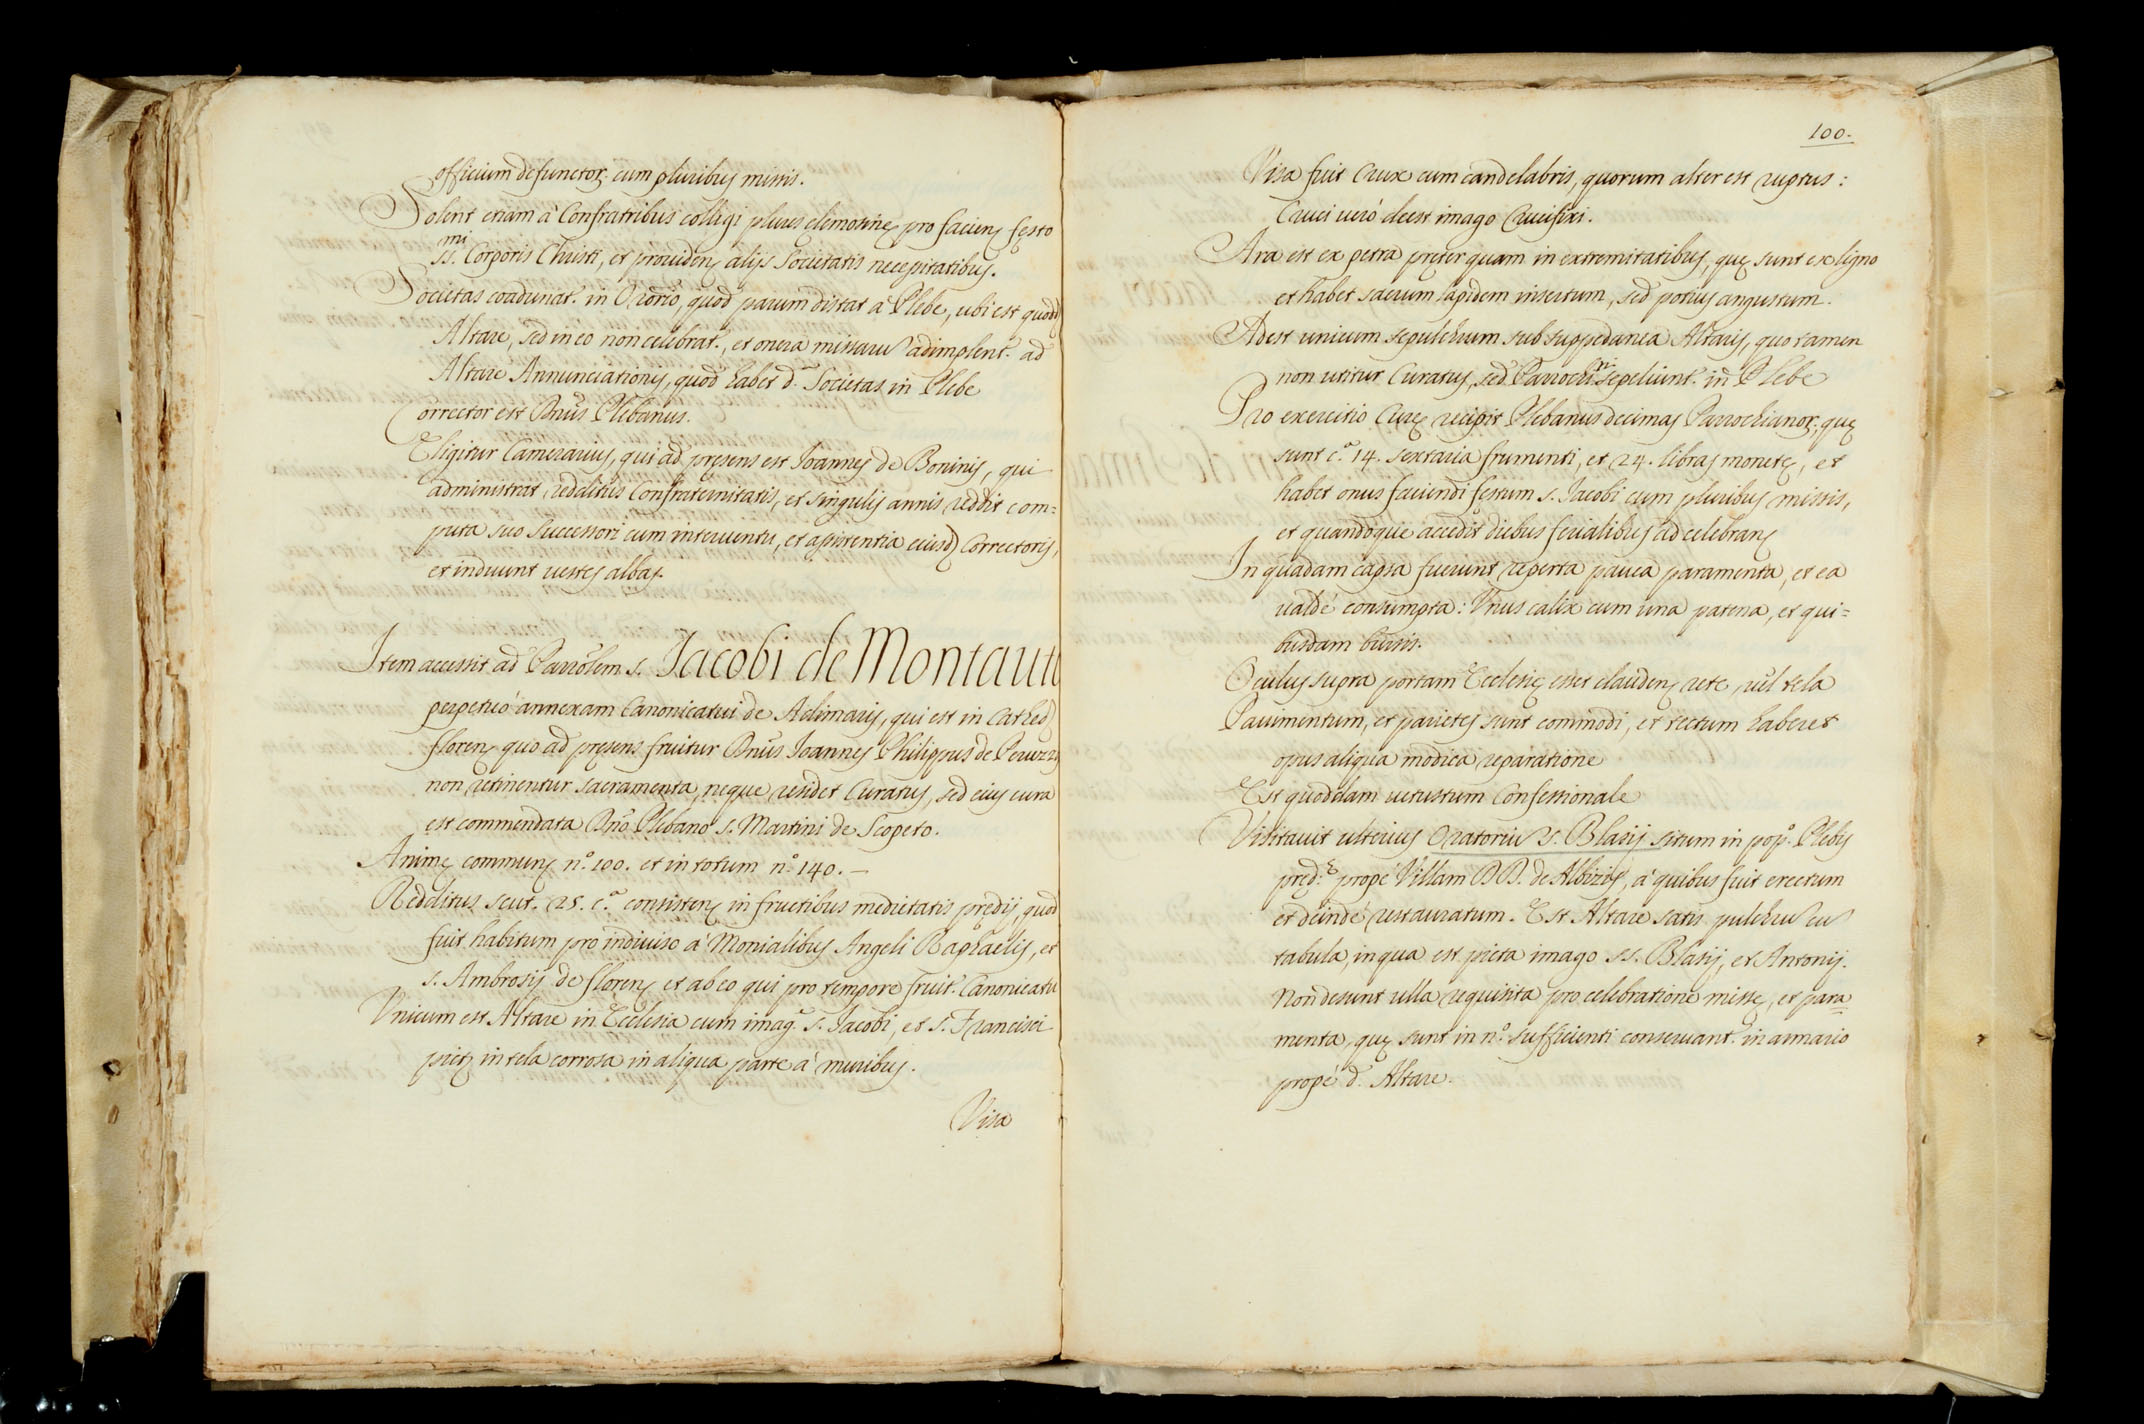 officium defunctor. cum pluribus missis.
Solent etiam à Confratribus colligi plures elemosinę pro facien. fęsto
ss.mi Corporis Christi, et prouiden. alijs Societatis necessitatibus.
Societas coadunat. in Orõrio, quod parum distat à Plebe, ubi est quodd.
Altare, sed in eo non celebrat., et onera missaru adimplent. ad
Altare Annunciationis, quod habet d.a Societas in Plebe
Corrector est Dnus Plebanus.
Eligitur Camerarius, qui ad pręsens est Ioannes de Boninis, qui
administrat redditus Confraternitatis, et singulis annis reddit com=
puta suo Successori cum interuentu, et assistentia eiusd. Correctoris,
et induunt uestes albas.
Item accessit ad Parrõlem s. Jacobi de Montauti
perpetuò annexam Canonicatui de Adimaris, qui est in Cathed.
floren. quo ad pręsens fruitur Dnus Ioannes Philippus de Peruzzis
non retinentur sacramenta, neque residet Curatus, sed eius cura
est commendata Dño Plebano s. Martini de Scopeto.
Animę communis n.o 100. et in totum n.o 140. –
Redditus scut. 25. c.a consisten. in fructibus medietatis prędij, quod
fuit habitum pro indiuiso à Monialibus Angeli Raphaelis, et
s. Ambrosij de floren. et ab eo qui pro tempore fruit. Canonicatu
Vnicum est Altare in Ecclesia cum imag.e s. Jacobi, et s. Francisci
pictę in tela corrosa in aliqua parte à muribus.
Visa
100.
Visa fuit Crux cum candelabris, quorum alter est ruptus:
Cruci uerò deest imago Crucifixi.
Ara est ex petra pręter quam in extremitatibus, quę sunt ex ligno
et habet sacrum lapidem insertum, sed potius angustum.
Adest unicum sepulchrum sub suppedanea Altaris, quo tamen
non utitur Curatus, sed Parrochni sepeliunt. in Plebe
Pro exercitio Curę recipit Plebanus decimas Parrochianor. quę
sunt c.a 14. sextaria frumenti, et 24. libras monetę, et
habet onus faciendi festum s. Jacobi cum pluribus missis,
et quandoque accedit diebus ferialibus ad celebran.
In quadam capsa fuerunt reperta pauca paramenta, et ea
ualdè consumpta: Vnus calix cum una patena, et qui=
busdam bursis.
Oculus supra portam Ecclesię esset clauden. rete uel tela
Pauimentum, et parietes sunt commodi, et tectum haberet
opus aliqua modica reparatione
Est quoddam uetustum Confessionale
Visitauit ulterius Oratoriu s. Blasij situm in pop.o Plebis
pręd.ę propè Villam DD. de Albizis, à quibus fuit erectum
et deindè restauratum. Est Altare satis pulchru cu
tabula, in qua est picta imago ss. Blasij, et Antonij.
Non desunt ulla requisita pro celebratione missę, et para=
menta, quę sunt in n.o sufficienti conseruant. in armario
propè d. Altare.